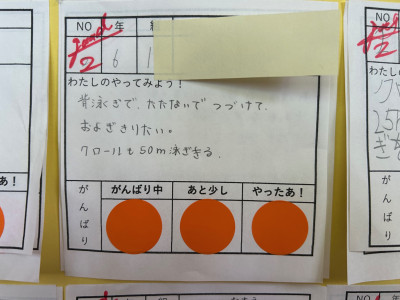 NO 年 組
good 2 6 1
わたしのやってみよう！
背泳ぎで、たたないで つづけて、
およぎきりたい。
クロールも50m泳ぎきる。
がんばり がんばり中 あと少し やったあ！
あ！
わたしの
25
NO 年